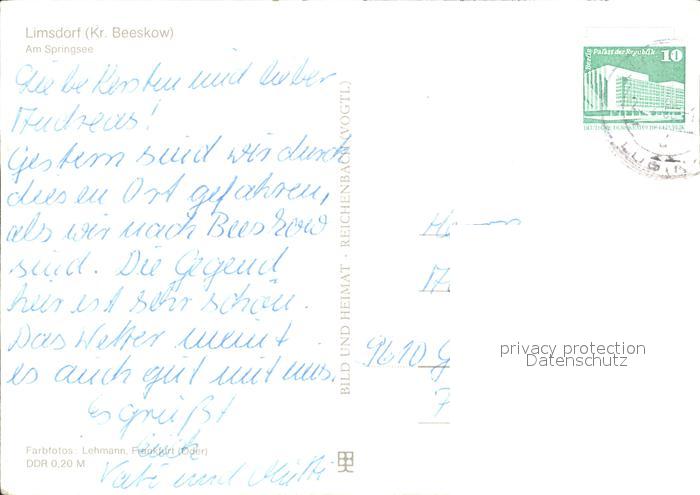 Limsdorf (Kr. Beeskow)
Am Springsee
Liebe Kerstin und lieber
Andreas!
Gestern sind wir durch
diesen Ort gefahren,
als wir nach Beeskow
sind. Die Gegend
hier ist sehr schön.
Das Wetter meint
es auch gut mit uns.
Es grüßt
euch
Vati und Mutti
Farbfotos: Lehmann, Frankfurt (Oder)
DDR 0,20 M
BILD UND HEIMAT · REICHENBACH (VOGTL)
Berlin Palast der Republik
10
DEUTSCHE DEMOKRATISCHE REPUBLIK
9610 G
privacy protection
Datenschutz